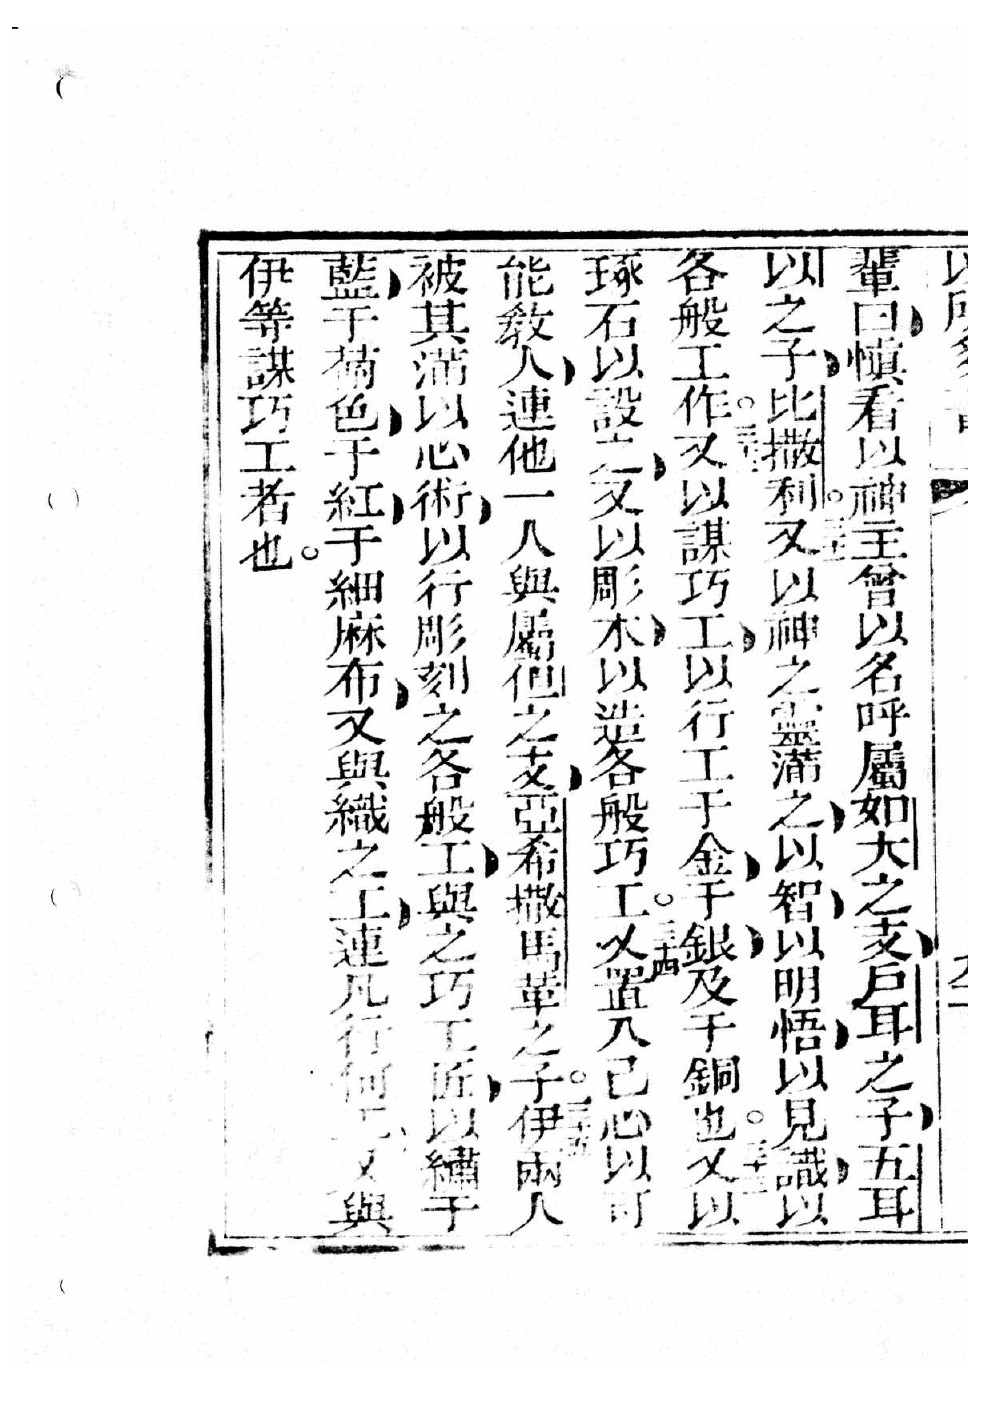 輩曰慎看以神主曾以名呼屬如大之支戶耳之子五耳
以之子比撒利。三十一又以神之靈滿之以智以明悟以見識以
各般工作。三十二又以謀巧工以行工于金于銀及于銅也。三十三又以
琢石以設之又以彫木以造各般巧工。三十四又置入己心以可
能敎人連他一人與屬但之支亞希撒馬革之子。三十五伊兩人
被其滿以心術以行彫刻之各般工與之巧工匠以繡于
藍于菊色于紅于細麻布又與織之工連凡行何工又與
伊等謀巧工者也。